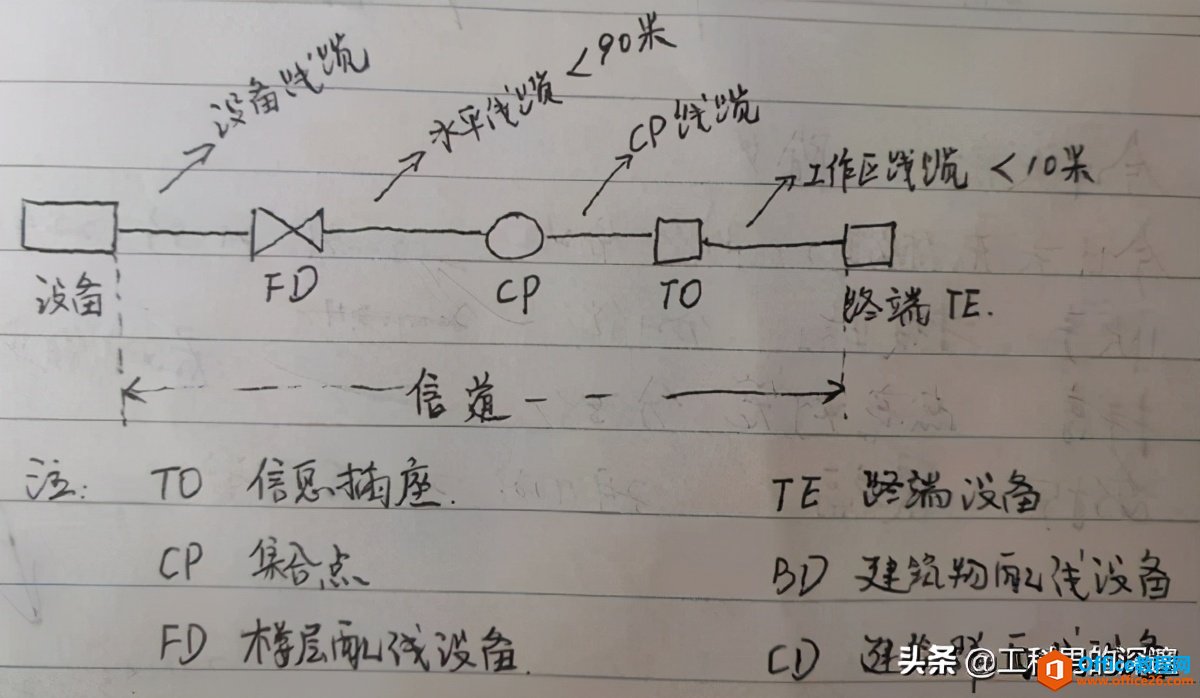 设备线缆
水平线缆 <90米
CP线缆
工作区线缆 <10米
设备
FD
CP
TO
终端 TE.
信道
注: TO 信息插座.
TE 终端设备
CP 集合点
BD 建筑物配线设备
FD 楼层配线设备.
CD 建筑群
头条 @工科男的深墒
Office教程网
www.office26.com